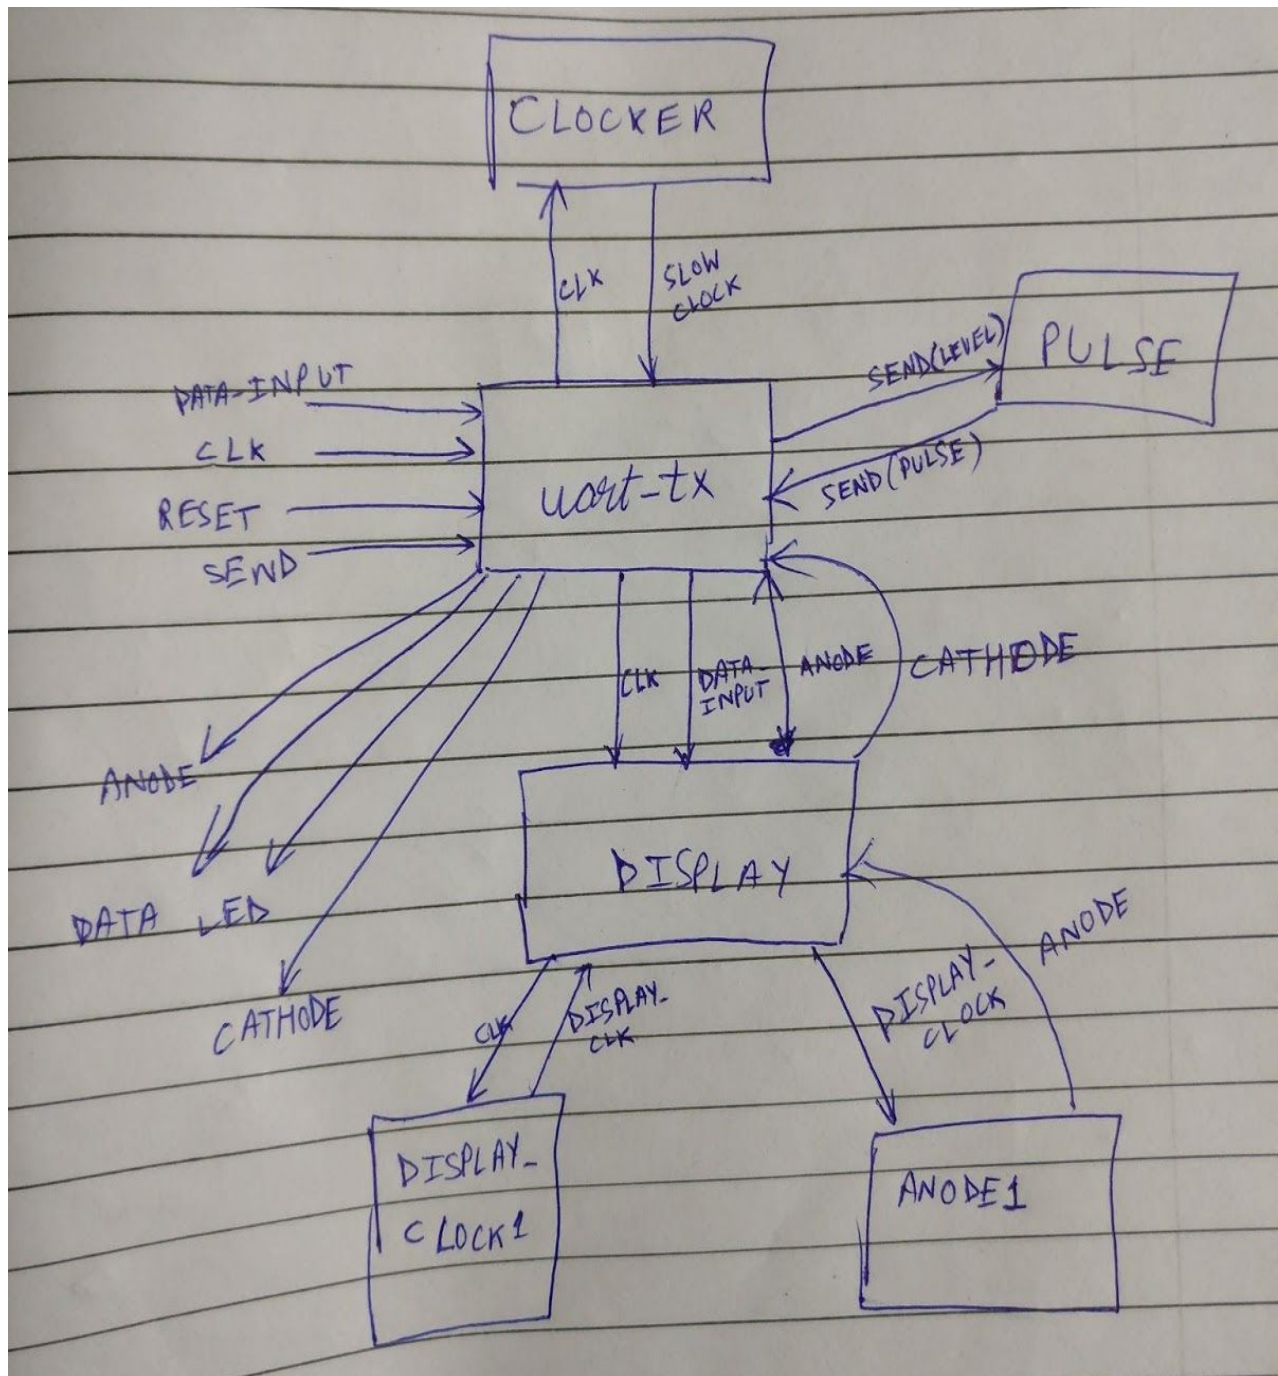 CLOCKER
CLK
SLOW
CLOCK
PULSE
SEND(LEVEL)
SEND(PULSE)
DATA-INPUT
CLK
RESET
SEND
uart-tx
CLK
DATA-
INPUT
ANODE
CATHODE
ANODE
DATA LED
CATHODE
DISPLAY
CLK
DISPLAY-
CLK
DISPLAY-
CLOCK
ANODE
DISPLAY-
CLOCK1
ANODE1